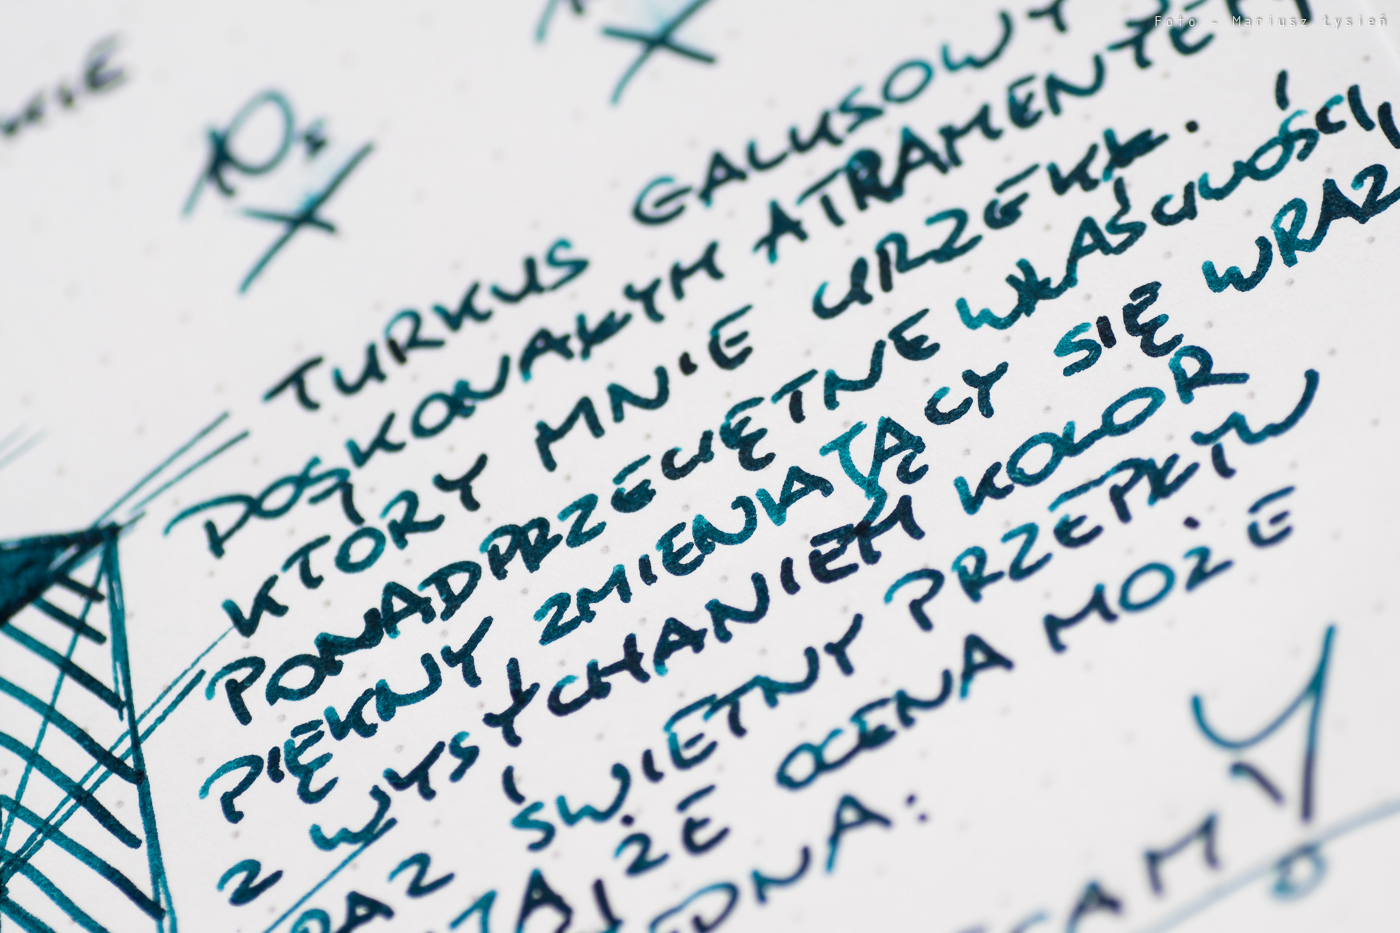 Foto - Mariusz Łysień
10s
TURKUS GALUSOWY
DOSKONAŁYM ATRAMENTEM
KTÓRY MNIE URZEKŁ.
PONADPRZECIĘTNE WŁAŚCIWOŚCI,
PIĘKNY ZMIENIAJĄCY SIĘ WRAZ
Z WYSYCHANIEM KOLOR
ORAZ ŚWIETNY PRZEPŁYW
ŻE OCENA MOŻE
JEDNA: